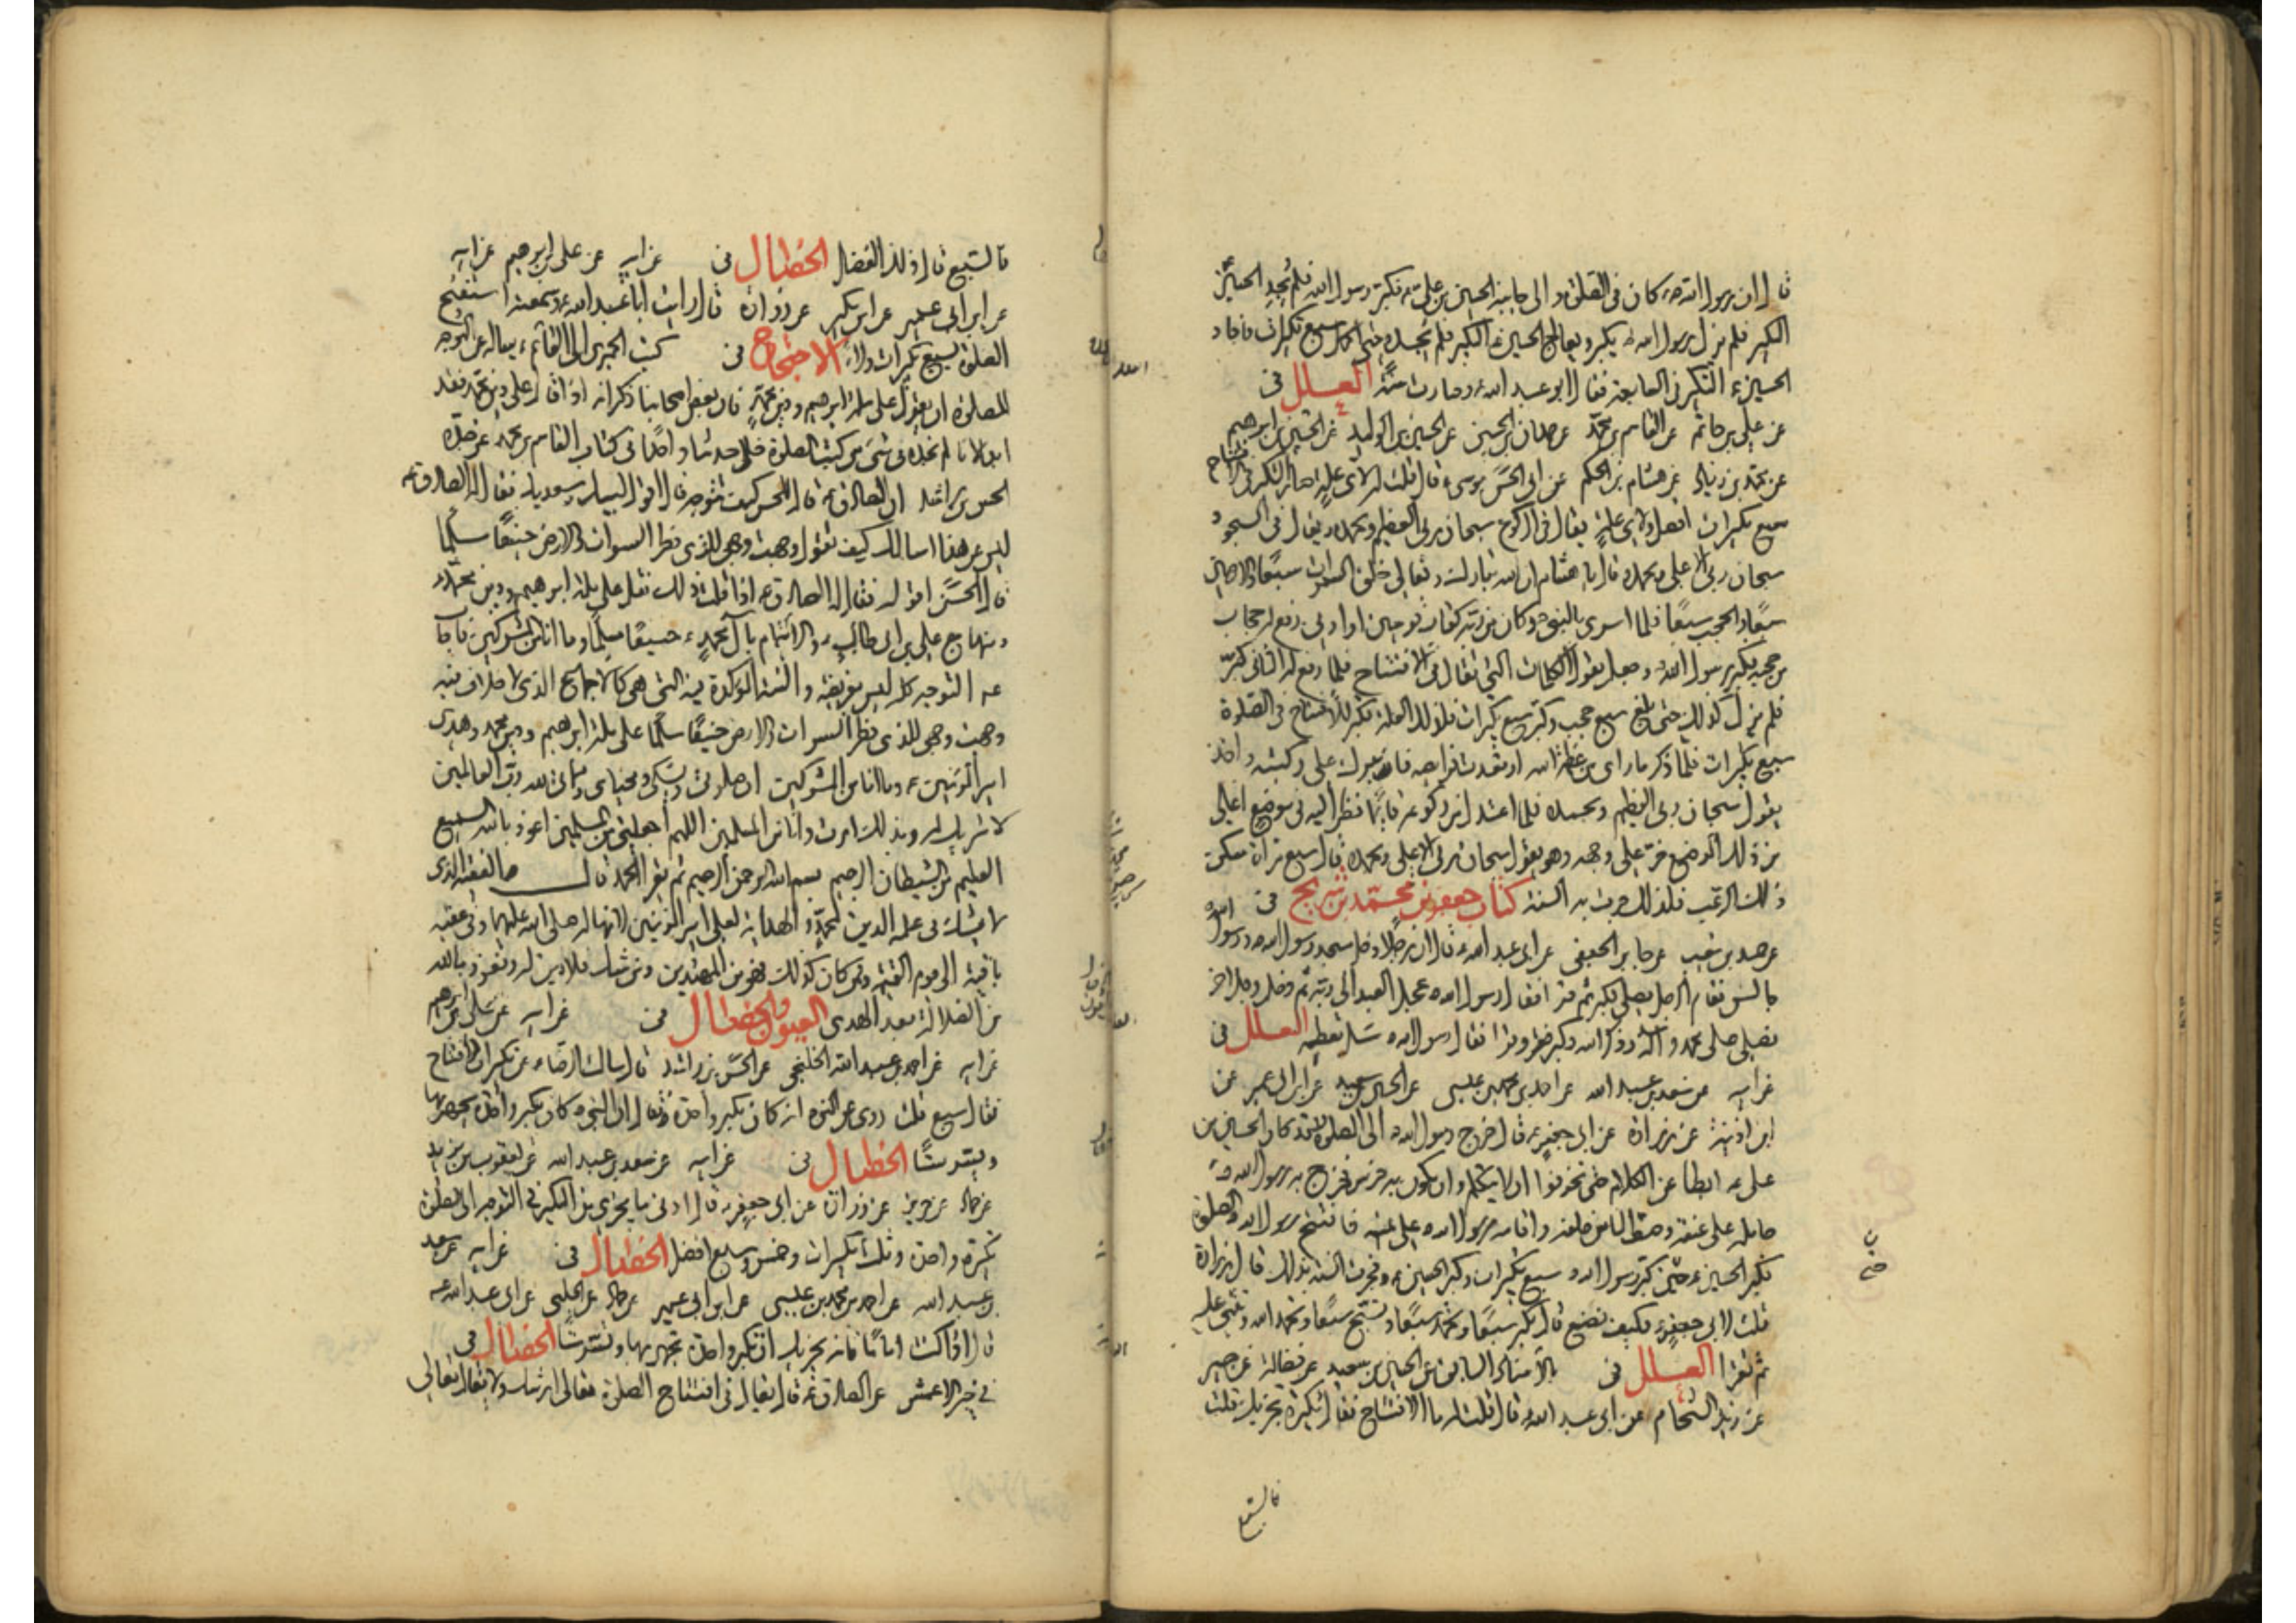 قال ان رسول الله ص كان فى الصلوة والى جانبه الحسين بن على ع فكبر رسول الله فلم يحر الحسين
التكبير فلم يزل رسول الله ص يكبر ويعالج الحسين ع التكبير فلم يحر حتى اكمل سبع تكبيرات فاحار
الحسين ع التكبير فى السابعة فقال ابو عبد الله ع وصارت سنة العلل فى
عن على بن حاتم عن القاسم بن محمد عن حمدان بن الحسين عن الحسين بن الوليد عن الحسين بن ابرهيم
عن محمد بن زياد عن هشام بن الحكم عن ابى الحسن موسى ع قال قلت له لاى علة صار التكبير فى الافتتاح
سبع تكبيرات افضل ولاى علة يقال فى الركوع سبحان ربى العظيم وبحمده ويقال فى السجود
سبحان ربى الاعلى وبحمده قال يا هشام ان الله تبارك وتعالى خلق السموات سبعا والارضين
سبعا والحجب سبعا فلما اسرى بالنبى ص وكان من ربه كقاب قوسين او ادنى رفع له حجاب
من حجبه فكبر رسول الله ص وجعل يقول الكلمات التى تقال فى الافتتاح فلما رفع له الثانى كبر
فلم يزل كذلك حتى بلغ سبع حجب وكبر سبع تكبيرات فلذلك العلة تكبر للافتتاح فى الصلوة
سبع تكبيرات فلما ذكر ما راى من عظمة الله ارتعدت فرايصه فابترك على ركبتيه واخذ
يقول سبحان ربى العظيم وبحمده فلما اعتدل من ركوعه قائما نظر اليه فى موضع اعلى
من ذلك الموضع خر على وجهه وهو يقول سبحان ربى الاعلى وبحمده فلما قال سبع مرات سكن
ذلك الرعب فلذلك جرت به السنة كتاب جعفر بن محمد بن شريح فى
عن حميد بن شعيب عن جابر الجعفى عن ابى عبد الله ع قال ان رجلا دخل مسجد رسول الله ص ورسول الله
جالس فقام الرجل يصلى فكبر ثم قرا فقال رسول الله ص عجل العبد الى ربه ثم دخل رجل اخر
فصلى على محمد وآله وذكر الله وكبر وقرا فقال رسول الله ص سل تعطه العلل فى
عن ابيه عن سعد بن عبد الله عن احمد بن محمد بن عيسى عن الحسين بن سعيد عن ابن ابى عمير عن
ابن اذينة عن زرارة عن ابى جعفر ع قال خرج رسول الله ص الى الصلوة وقد كان الحسين بن
على ع ابطا عن الكلام حتى تخوفوا ان لا يتكلم وان يكون به خرس فخرج به رسول الله ص
حامله على عنقه وصف الناس خلفه واقامه رسول الله ص على يمينه فافتتح رسول الله ص الصلوة
فكبر الحسين ع حتى كبر رسول الله ص سبع تكبيرات وكبر الحسين ع فجرت السنة بذلك قال زرارة
قلت لابى جعفر ع فكيف نصنع قال تكبر سبعا وتحمد سبعا وتسبح سبعا وتحمد الله وتثنى عليه
ثم تقرا العلل فى بالاسناد السابق عن الحسين بن سعيد عن فضالة عن حسين
عن زيد الشحام عن ابى عبد الله ع قال قلت له ما الافتتاح فقال تكبيرة تجزيك قلت
فالسبع
فالسبع قال ذلك الفضل الخصال فى عن ابيه عن على بن ابرهيم عن ابيه
عن ابن ابى عمير عن ابن بكير عن زرارة قال رايت ابا عبد الله ع وسمعته استفتح
الصلوة بسبع تكبيرات ولاء الاحتجاج فى كتب الحميرى الى القائم ع يساله عن التوجه
للصلوة ان يقول على ملة ابرهيم ودين محمد فان بعض اصحابنا ذكر انه اذا قال على دين محمد فقد
ابدع لانا لم نجده فى شىء من كتب الصلوة خلا حديثا واحدا فى كتاب القاسم بن محمد عن جده
الحسن بن راشد ان الصادق ع قال للحسن كيف تتوجه قال اقول لبيك وسعديك فقال له الصادق ع
ليس عن هذا اسالك كيف تقول وجهت وجهى للذى فطر السموات والارض حنيفا مسلما
قال الحسن اقوله فقال له الصادق ع اذا قلت ذلك فقل على ملة ابرهيم ودين محمد
ومنهاج على بن ابى طالب والائتمام بآل محمد ع حنيفا مسلما وما انا من المشركين فاجاب
ع التوجه كله ليس بفريضة والسنة الموكدة فيه التى هى كالاجماع الذى لا خلاف فيه
وجهت وجهى للذى فطر السموات والارض حنيفا مسلما على ملة ابرهيم ودين محمد وهدى
امير المؤمنين ع وما انا من المشركين ان صلوتى ونسكى ومحياى ومماتى لله رب العالمين
لا شريك له وبذلك امرت وانا من المسلمين اللهم اجعلنى من المسلمين اعوذ بالله السميع
العليم من الشيطان الرجيم بسم الله الرحمن الرحيم ثم تقرا الحمد قال الفقيه الذى
لا يشك فى علمه الدين لمحمد والهداية لعلى امير المؤمنين لانها له صلى الله عليهما وفى عقبه
باقية الى يوم القيمة فمن كان كذلك فهو من المهتدين ومن شك فلا دين له ونعوذ بالله
من الضلالة بعد الهدى العيون والخصال فى عن ابيه عن على بن ابرهيم
عن ابيه عن احمد بن عبد الله الخلنجى عن الحسن بن راشد قال سالت الرضا ع عن تكبيرات الافتتاح
فقال سبع قلت روى عن النبى ص انه كان يكبر واحدة فقال ان النبى ص كان يكبر واحدة يجهر بها
ويسر ستا الخصال فى عن ابيه عن سعد بن عبد الله عن يعقوب بن يزيد
عن حماد عن حريز عن زرارة عن ابى جعفر ع قال ادنى ما يجزى من التكبير فى التوجه الى الصلوة
تكبيرة واحدة وثلث تكبيرات وخمس وسبع افضل الخصال فى عن ابيه عن سعد
بن عبد الله عن احمد بن محمد بن عيسى عن ابن ابى عمير عن حماد عن الحلبى عن ابى عبد الله ع
قال اذا كنت اماما فانه يجزيك ان تكبر واحدة تجهر بها وتسر ستا الخصال فى
فى خبر الاعمش عن الصادق ع قال يقال فى افتتاح الصلوة تعالى عرشك ولا يقال تعالى